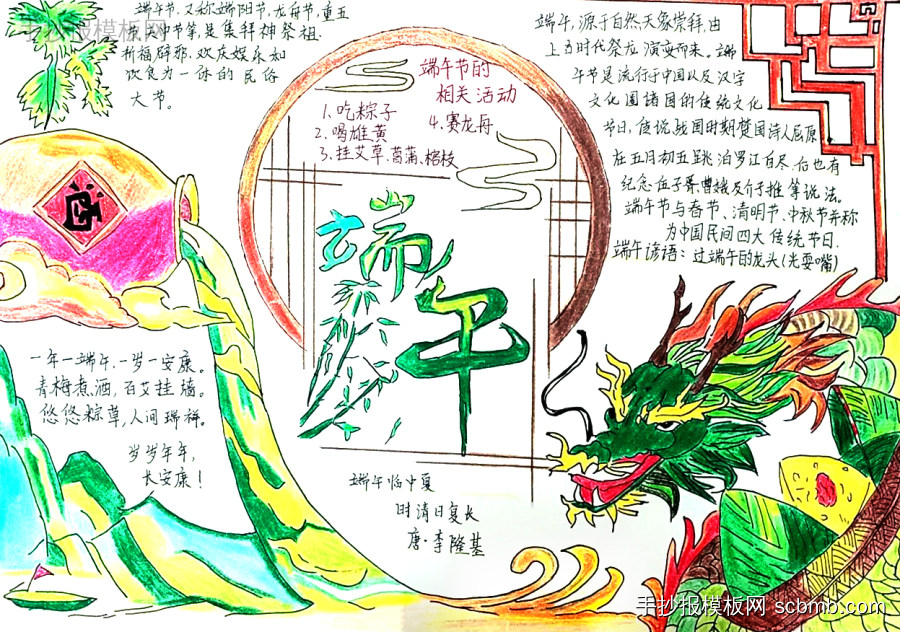 手抄报模板网
端午节,又称端阳节,龙舟节,重五
节,天中节等,是集拜神祭祖、
祈福辟邪、欢庆娱乐和
饮食为一体的民俗
大节。
端午节的
相关活动
1、吃粽子
2、喝雄黄
3、挂艾草、菖蒲、榕枝
4、赛龙舟
端午,源于自然天象崇拜,由
上古时代祭龙演变而来。端
午节是流行于中国以及汉字
文化圈諸国的传统文化
节日,传说战国时期楚国诗人屈原
在五月初五跳汨罗江自尽,后也有
纪念伍子胥、曹娥及介子推等说法。
端午节与春节、清明节、中秋节并称
为中国民间四大传统节日.
端午谚语:过端午的龙头(光耍嘴)
端午
一年一端午,一岁一安康。
青梅煮酒,百艾挂墙。
悠悠粽草,人间瑞祥。
岁岁年年,
长安康!
端午临中夏
时清日复长
唐·李隆基
手抄报模板网 scbmb.com